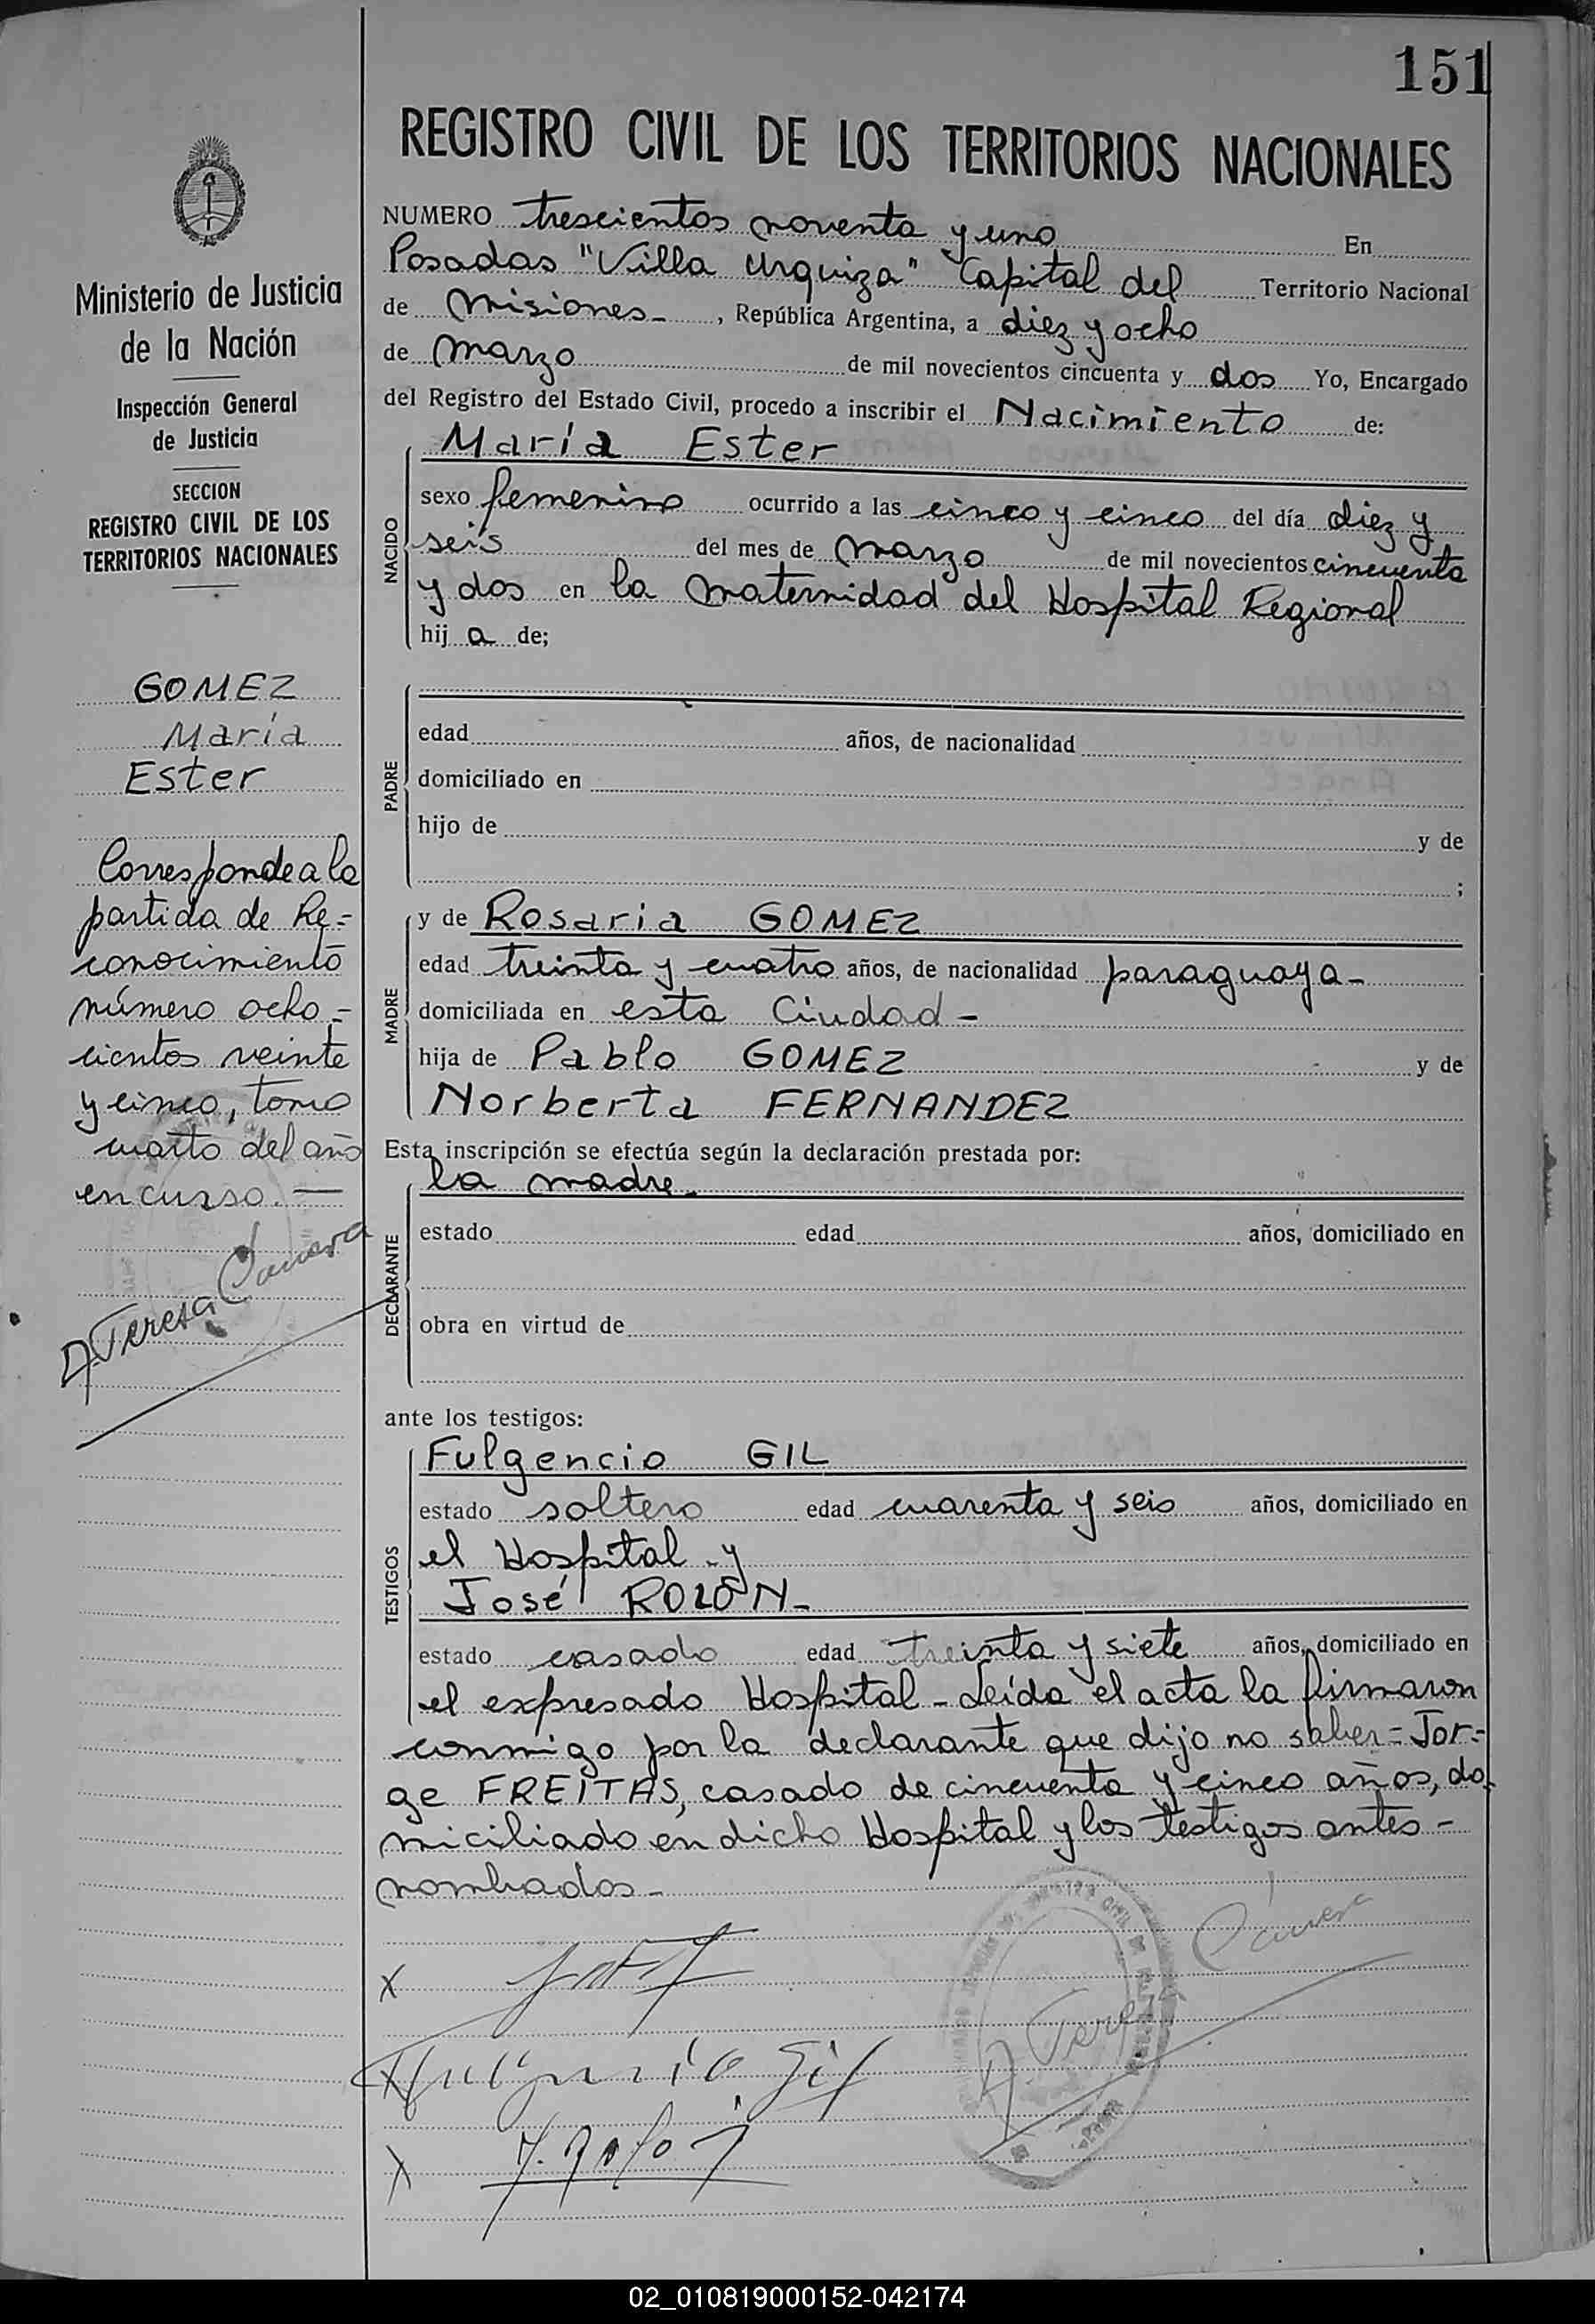 151
REGISTRO CIVIL DE LOS TERRITORIOS NACIONALES
Ministerio de Justicia
de la Nación
Inspección General
de Justicia
SECCION
REGISTRO CIVIL DE LOS
TERRITORIOS NACIONALES
GOMEZ
María
Ester
Corresponde a la
partida de Re=
conocimiento
número ocho=
cientos veinte
y cinco, tomo
cuarto del año
en curso.—
A. Teresa
NUMERO trescientos noventa y uno En
Posadas "Villa Urquiza" Capital del Territorio Nacional
de Misiones-, República Argentina, a diez y ocho
de marzo de mil novecientos cincuenta y dos Yo, Encargado
del Registro del Estado Civil, procedo a inscribir el Nacimiento de:
NACIDO
María Ester
sexo femenino ocurrido a las cinco y cinco del día diez y
seis del mes de marzo de mil novecientos cincuenta
y dos en la maternidad del Hospital Regional
hij a de;
PADRE
edad años, de nacionalidad
domiciliado en
hijo de y de
;
MADRE
y de Rosaria GOMEZ
edad treinta y cuatro años, de nacionalidad paraguaya-
domiciliada en esta Ciudad-
hija de Pablo GOMEZ y de
Norberta FERNANDEZ
Esta inscripción se efectúa según la declaración prestada por:
DECLARANTE
la madre-
estado edad años, domiciliado en
obra en virtud de
ante los testigos:
TESTIGOS
Fulgencio GIL
estado soltero edad cuarenta y seis años, domiciliado en
el Hospital y
José ROLÓN-
estado casado edad treinta y siete años, domiciliado en
el expresado Hospital- Leída el acta la firmaron
conmigo por la declarante que dijo no saber= Jor=
ge FREITAS, casado de cincuenta y cinco años, do-
miciliado en dicho Hospital y los testigos antes-
nombrados-
X
X Fulgencio Gil
X J. Rolon
A. Teresa
02_010819000152-042174